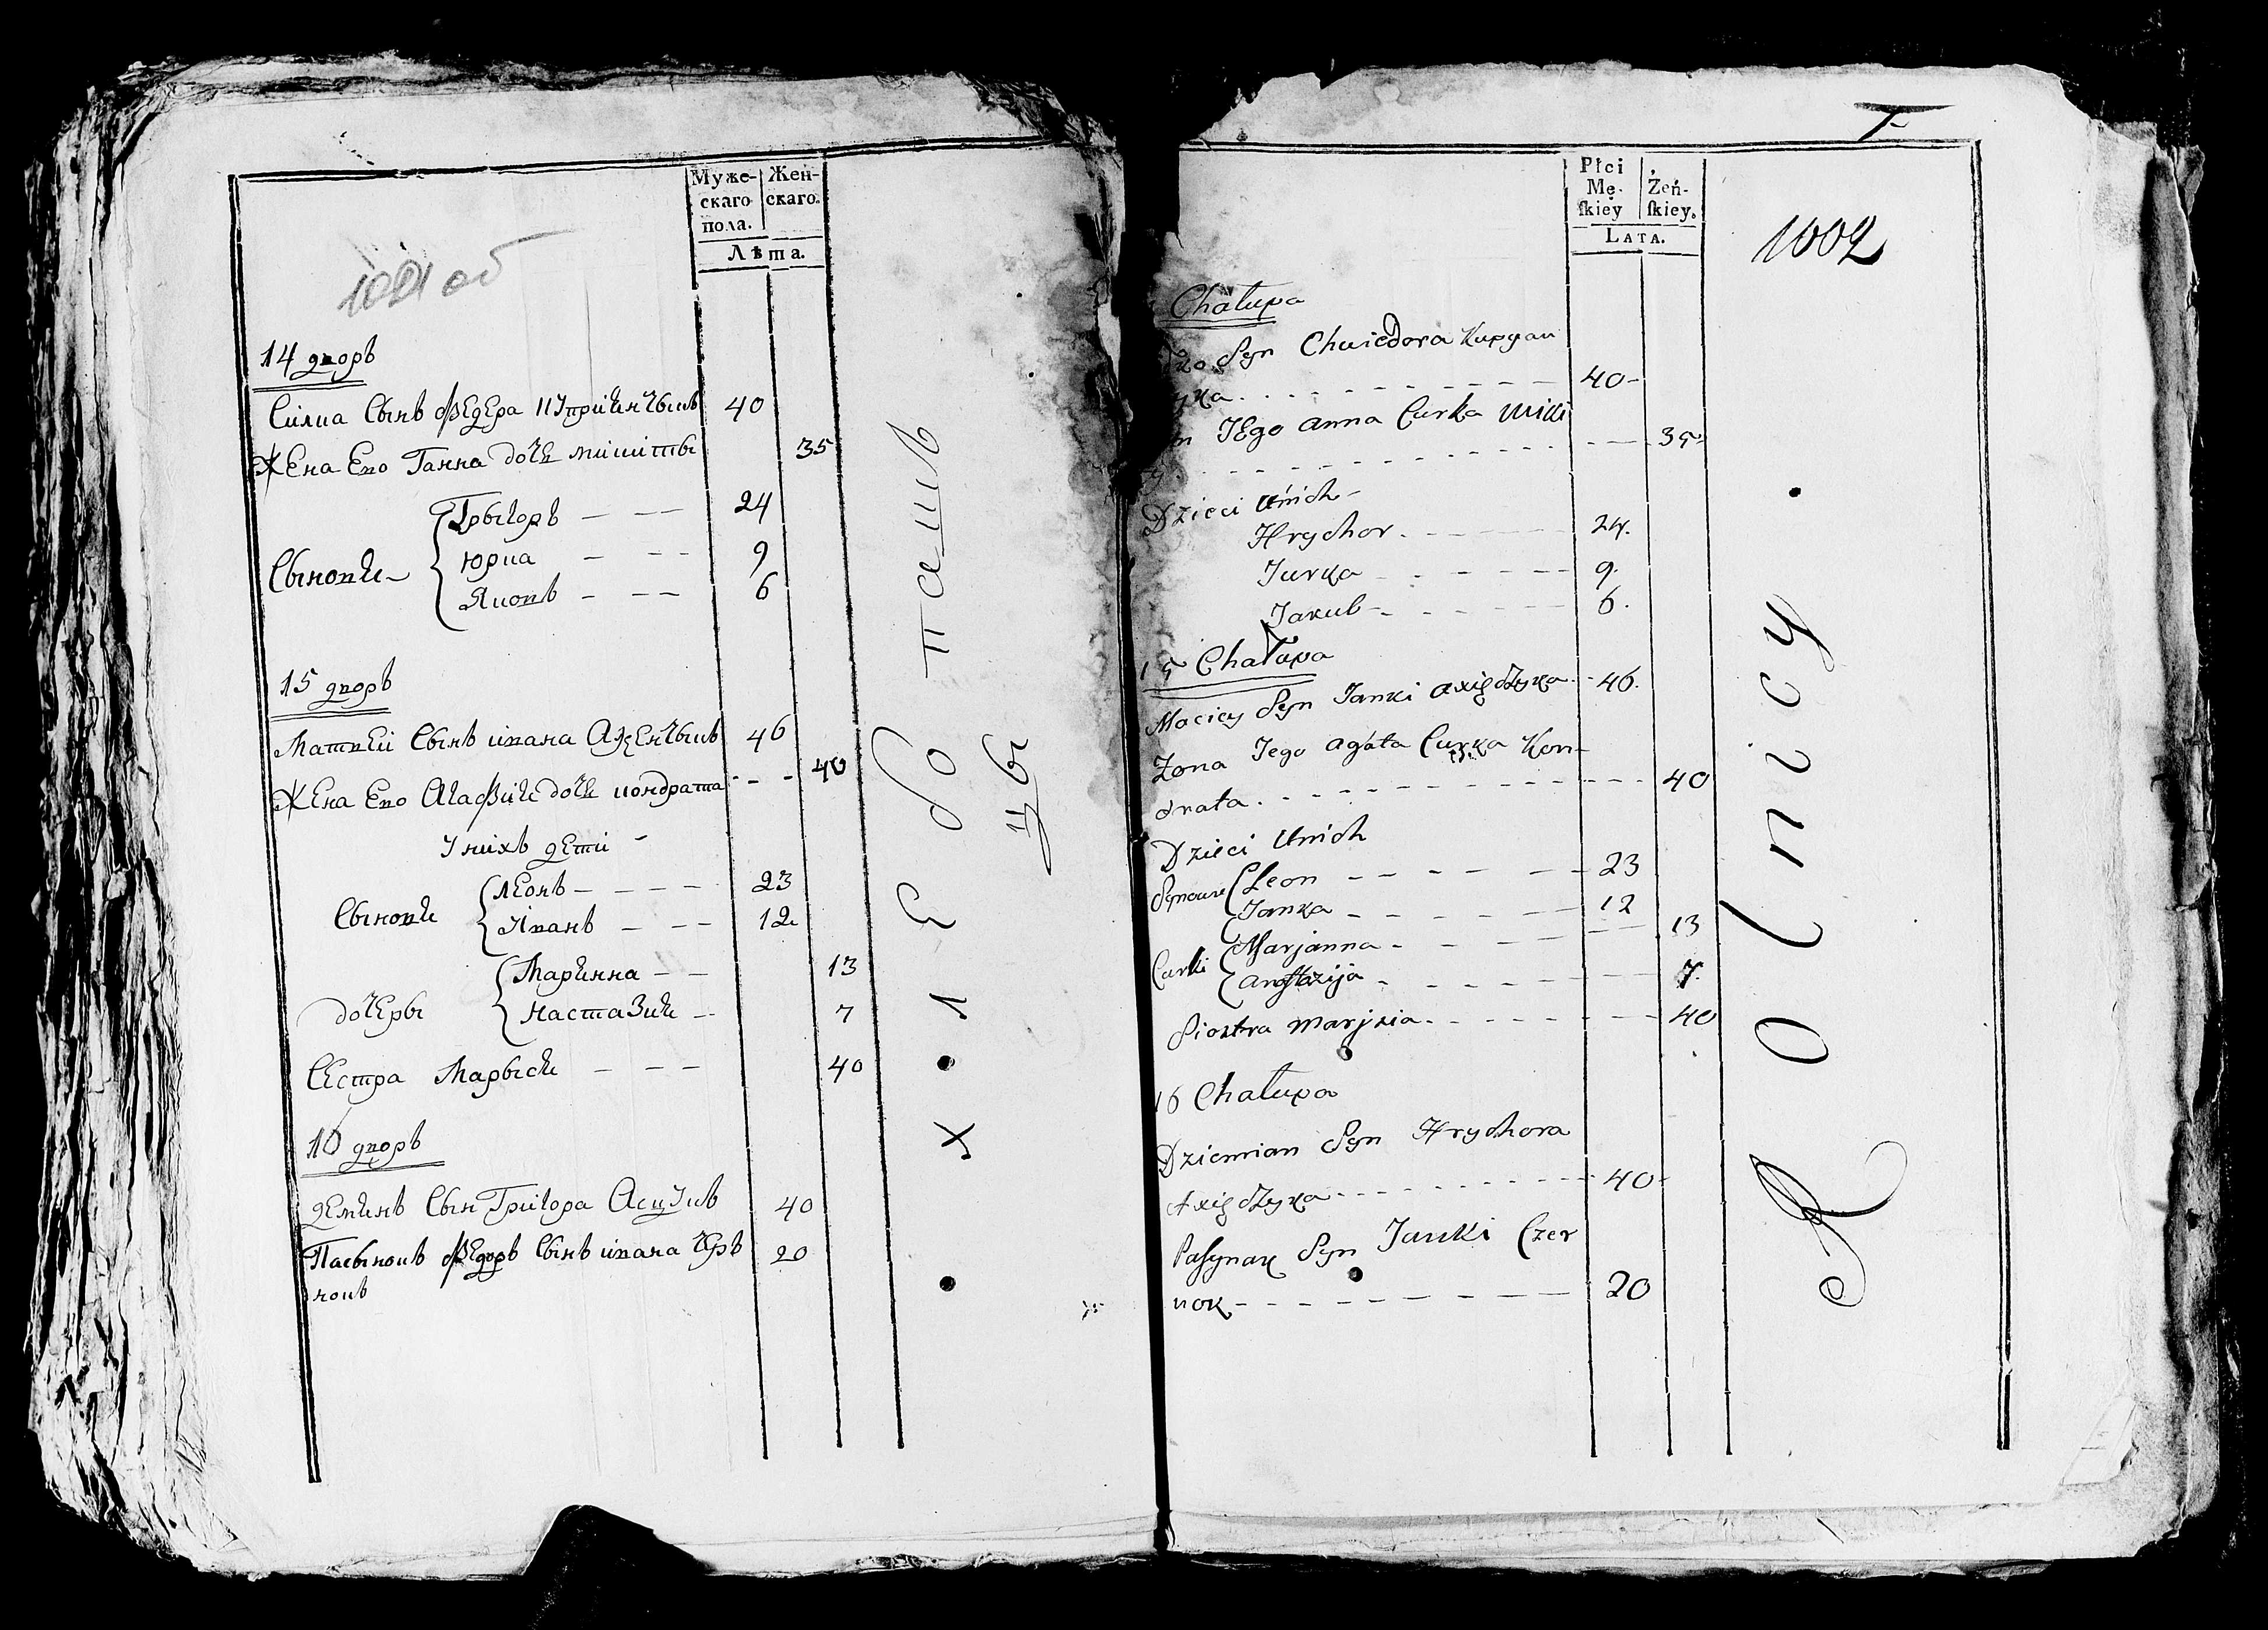 Муже-
скаго
пола.
Жен-
скаго.
Лѣта.
об
14 дворъ
Сынъ Федера 40
Жена Ево Ганна дочь микиты 35
Грыгоръ — — — 24
Сыновя
Юрка — — — 9
Яковъ — — — 6
15 дворъ
Матвей Сынъ ивана 46
Жена Ево Агафия дочь кондрата - - - 40
У нихъ дети
Сыновя
Леонъ — — — — 23
Иванъ — — — 12
дочеры
Марянна — — 13
Настазия — 7
Сестра Марыся — — — 40
16 дворъ
Демянъ Сын Григора 40
Пасынокъ Федоръ Сынъ ивана Чер 20
нокъ
Х Л Е Б О П А Ш
ЦЫ
Płci
Mę-
ſkiey
Żeń-
ſkiey.
LATA.
1002
Chałupa
Syn Chwiedora
40-
JEgo Anna Curka Miki
35
Dzieci Unich-
Hrychor 24.
Jurka 9.
Jakub 6.
15 Chałupa
Maciey Syn Janki 46.
Żona Jego Agata Curka Kon-
drata 40
Dzieci Unich
Synowie
Leon 23
Janka 12
Curki
Marjanna 13
Anastazija 7.
Siostra Marjsia 40
16 Chałupa
Dziemian Syn Hrychora
40-
Pasynak Syn Janki Czer
nok 20
Rolnicy